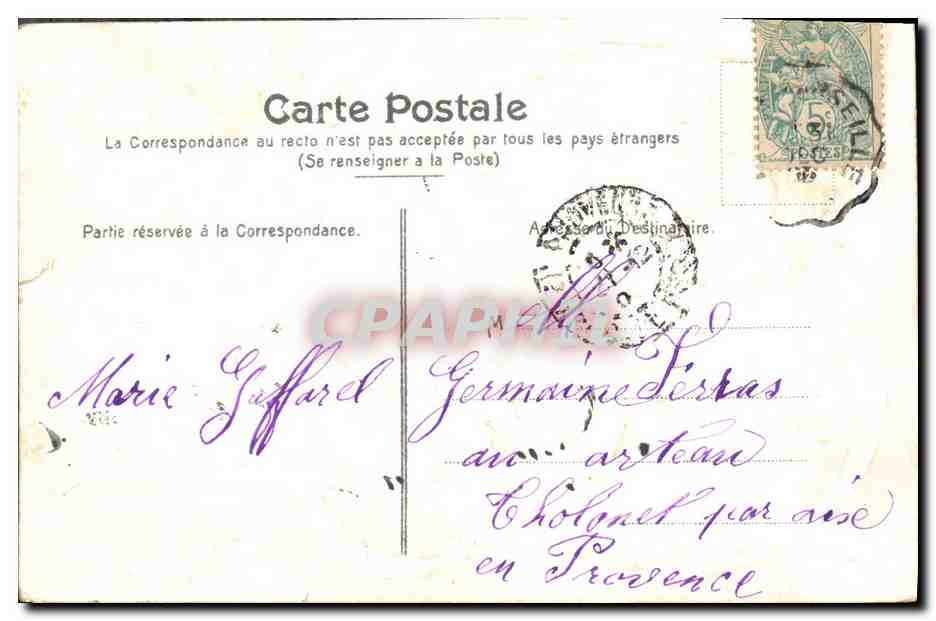 Carte Postale
La Correspondance au recto n'est pas acceptée par tous les pays étrangers
(Se renseigner a la Poste)
Partie réservée á la Correspondance.
Adresse du Destinataire.
5c
CPAPHIL
Melle
Marie Gaffarel
Germaine Ferras
au arteau
Tholonet par aise
en Provence